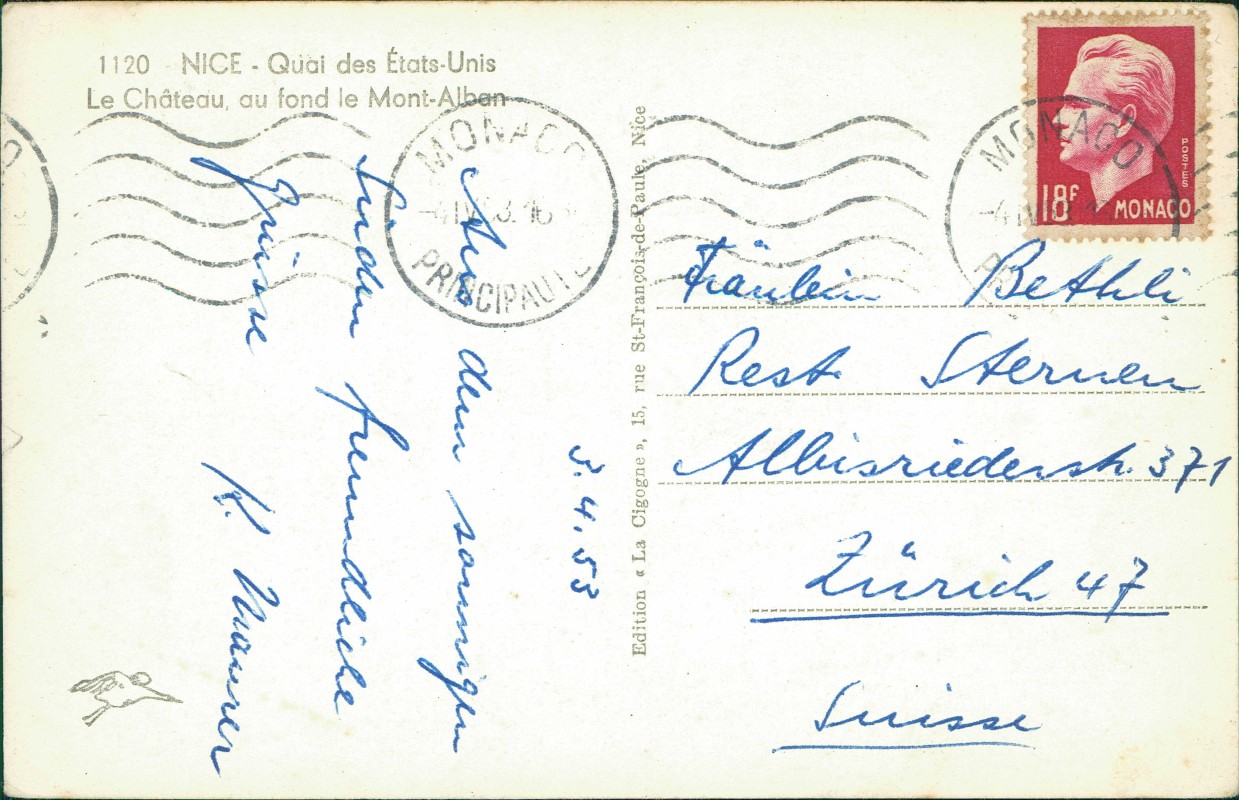 1120 NICE - Quai des États-Unis
Le Château, au fond le Mont-Alban
MONACO
-4 IV 53. 16
PRINCIPAUTÉ
3. 4. 53
Aus dem sonnigen
Süden freundliche
Grüsse
K. Maurer
Edition « La Cigogne », 15, rue St-François-de-Paule, Nice
POSTES
18F MONACO
MONACO
Fräulein Bethli
Rest. Sternen
Albisriederstr. 371
Zürich 47
Suisse